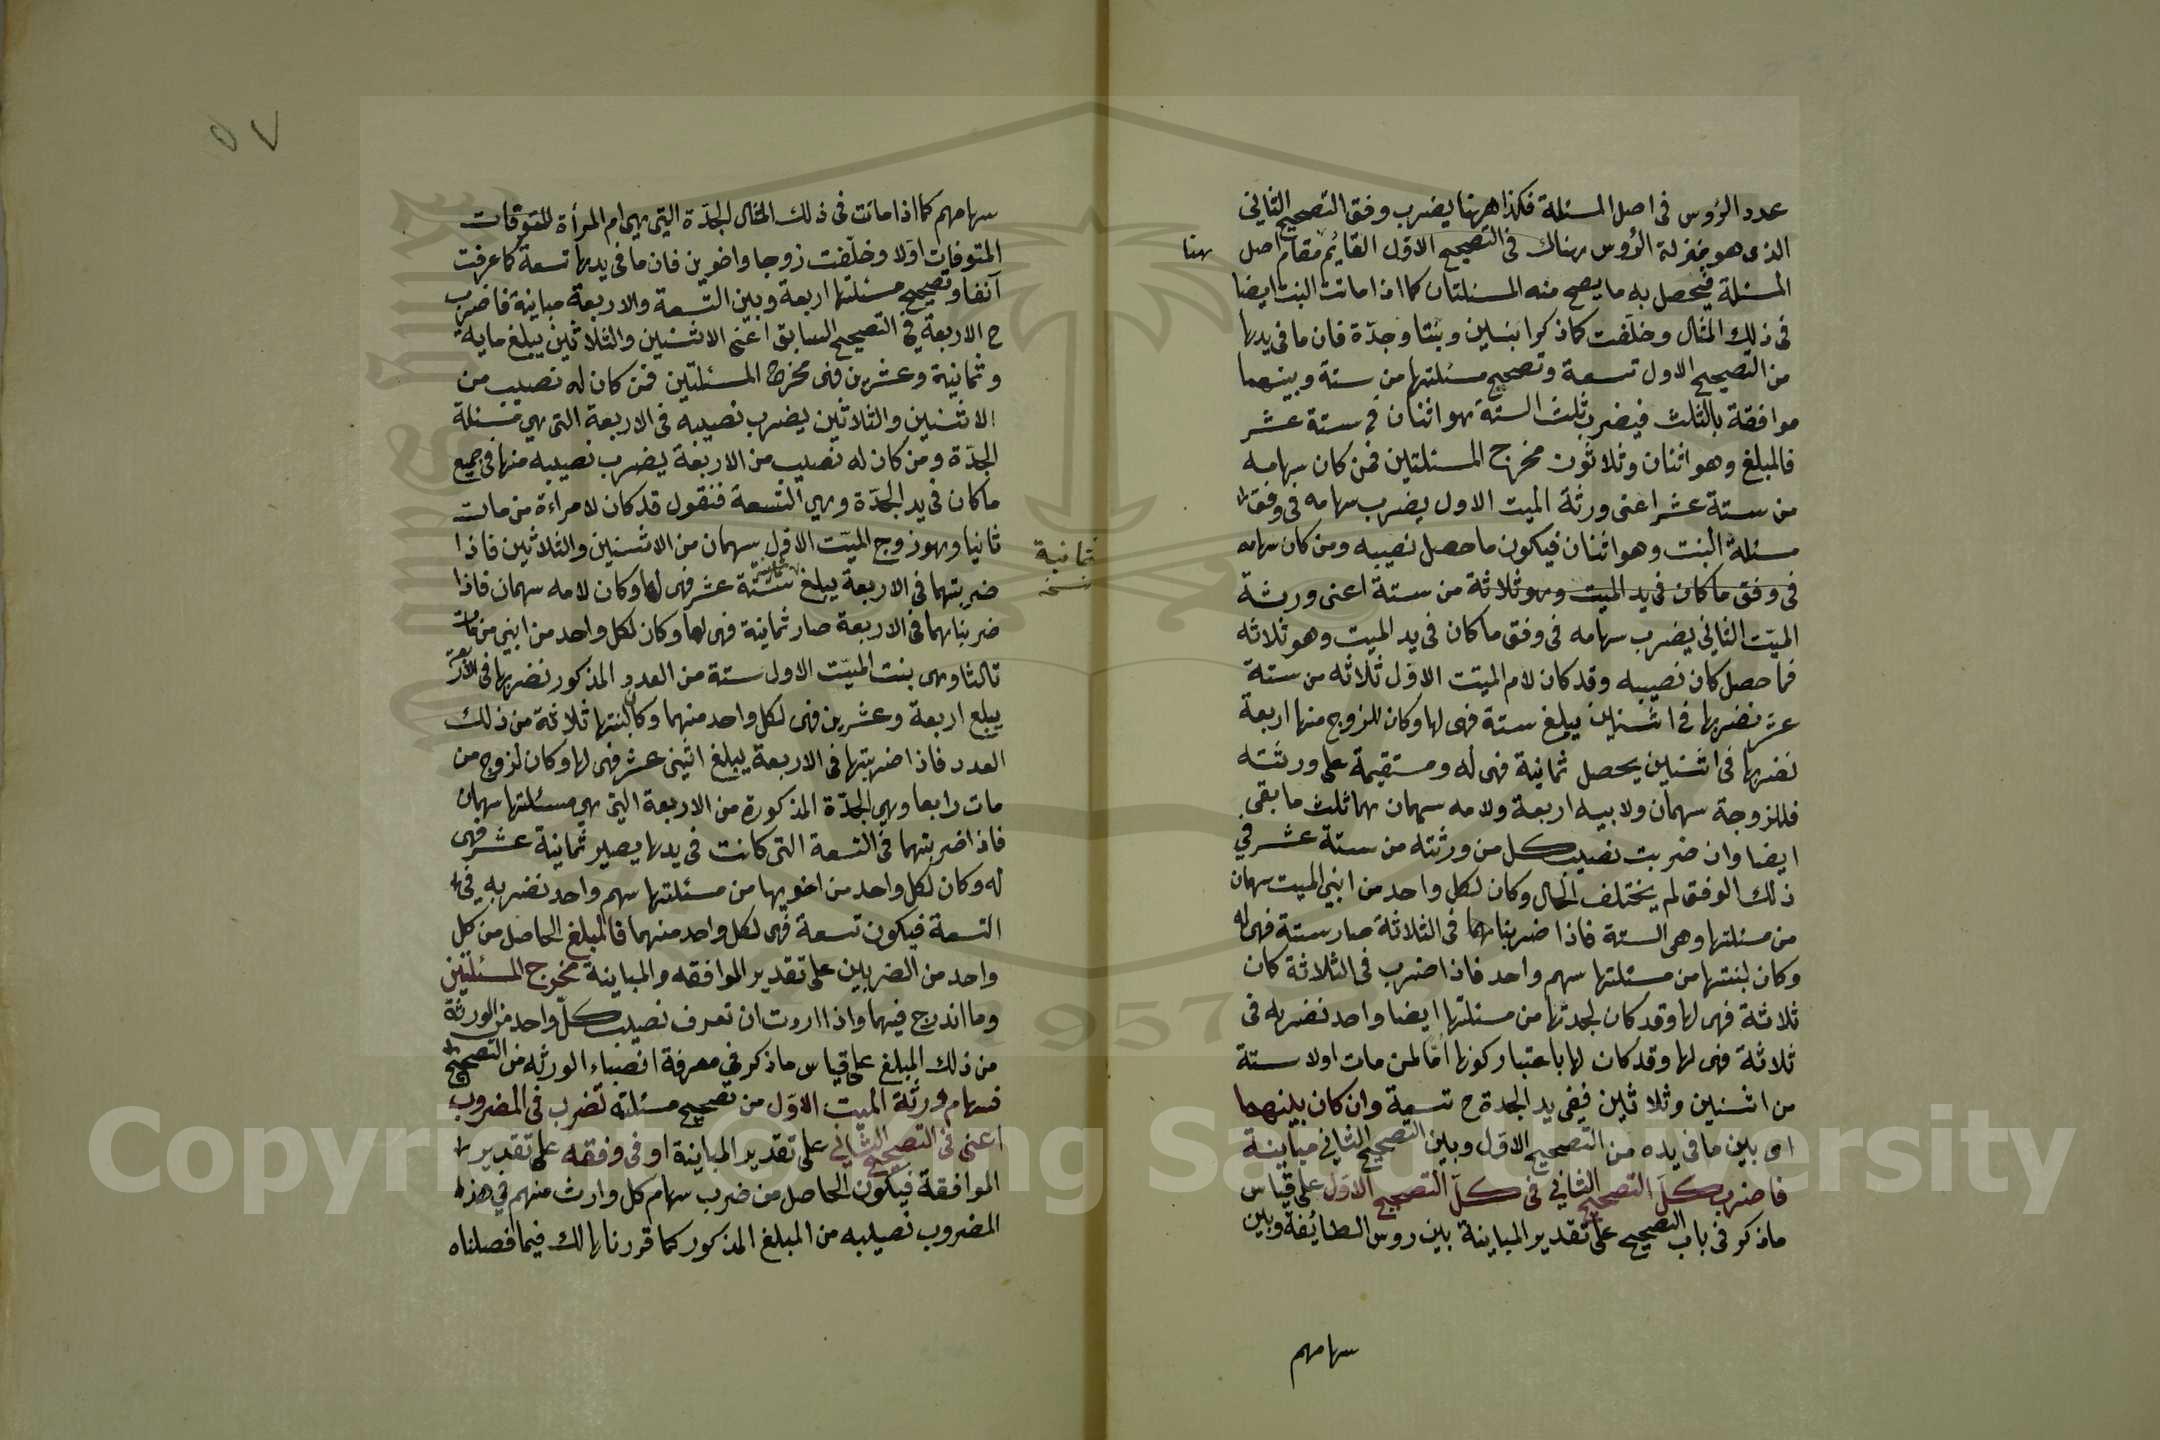 عدد الرؤس فى اصل المسئلة فكذا ههنا يضرب وفق التصحيح الثانى
الذى هو بمنزلة الرؤس هناك فى التصحيح الاول القائم مقام اصل
هنا
المسئلة فيحصل به ما يصح منه المسئلتان كما اذا ماتت البنت ايضا
فى ذلك المثال وخلفت كما ذكر ابنين وبنتا وجدّة فان ما فى يدها
من التصحيح الاول تسعة وتصحيح مسئلتها من ستة وبينهما
موافقة بالثلث فيضرب ثلث الستة هو اثنان فى ستة عشر
فالمبلغ وهو اثنان وثلاثون مخرج المسئلتين فمن كان سهامه
من ستة عشر اعنى ورثة الميت الاول يضرب سهامه فى وفق
مسئلة البنت وهو اثنان فيكون ما حصل نصيبه ومن كان سهامه
فى وفق ما كان فى يد الميت وهو ثلاثة من ستة اعنى ورثة
الميّت الثانى يضرب سهامه فى وفق ما كان فى يد الميت وهو ثلاثه
فما حصل كان نصيبه وقد كان لام الميت الاوّل ثلاثه من ستة
عشر نضربها فى اثنين يبلغ ستة فهى لها وكان للزوج منها اربعة
نضربها فى اثنين يحصل ثمانية فهى له ومستقيمة على ورثته
فللزوجة سهمان ولابيه اربعة ولامه سهمان هما ثلث ما بقى
ايضا وان ضربت نصيب كل من ورثته من ستة عشر فى
ذلك الوفق لم يختلف الحال وكان لكل واحد من ابنى الميت سهمان
من مسئلتها وهى الستة فاذا ضربناهما فى الثلاثة صار ستة فهى له
وكان لبنتها من مسئلتها سهم واحد فاذا ضرب فى الثلاثة كان
ثلاثة فهى لها وقد كان لجدتها من مسئلتها ايضا واحد نضربه فى
ثلاثة فهى لها وقد كان لها باعتبار كونها امّا لمن مات اولا ستة
من اثنين وثلاثين ففى يد الجدة ح تسعة وان كان بينهما
اى بين ما فى يده من التصحيح الاول وبين التصحيح الثانى مباينة
فاضرب كلّ التصحيح الثانى فى كلّ التصحيح الاوّل على قياس
ما ذكر فى باب التصحيح على تقدير المباينة بين روس الطائفة وبين
سهامهم
٥٧
سهامهم كما اذا ماتت فى ذلك المثال الجدّة التى هى ام المرأة المتوفات
المتوفات اولا وخلّفت زوجا واخوين فان ما فى يدها تسعة كما عرفت
آنفا وتصحيح مسئلتها اربعة وبين التسعة والاربعة مباينة فاضرب
ح الاربعة فى التصحيح السابق اعنى الاثنين والثلاثين يبلغ ماية
وثمانية وعشرين فهى مخرج المسئلتين فمن كان له نصيب من
الاثنين والثلاثين يضرب نصيبه فى الاربعة التى هى مسئلة
الجدّة ومن كان له نصيب من الاربعة يضرب نصيبه منها فى جميع
ما كان فى يد الجدّة وهى التسعة فنقول قد كان لامراءة من مات
ثانيا وهو زوج الميّت الاول سهمان من الاثنين والثلاثين فاذا
ثمانية
نسخه
ضربتهما فى الاربعة يبلغ ستة عشر فهى لها وكان لامه سهمان فاذا
ضربناهما فى الاربعة صار ثمانية فهى لها وكان لكل واحد من ابنى من مات
ثالثا وهى بنت الميّت الاول ستة من العدد المذكور نضربها فى الاربعة
يبلع اربعة وعشرين فهى لكل واحد منهما وكان لبنتها ثلاثة من ذلك
العدد فاذا ضربتها فى الاربعة يبلغ اثنى عشر فهى لها وكان لزوج من
مات رابعا وهى الجدّة المذكورة من الاربعة التى هى مسئلتها سهمان
فاذا ضربتهما فى التسعة التى كانت فى يدها يصير ثمانية عشر فهى
له وكان لكل واحد من اخويها من مسئلتها سهم واحد نضربه فى
التسعة فيكون تسعة فهى لكل واحد منهما فالمبلغ الحاصل من كل
واحد من الضربين على تقدير الموافقه والمباينة مخرج المسئلتين
وما اندرج فيهما واذا اردت ان تعرف نصيب كلّ واحد من الورثة
من ذلك المبلغ على قياس ما ذكر فى معرفة انصباء الورثه من التصحيح
فسهام ورثة الميت الاوّل من تصحيح مسئلته تضرب فى المضروب
اعنى فى التصحيح الثانى على تقدير المباينة او فى وفقه على تقدير
الموافقة فيكون الحاصل من ضرب سهام كل وارث منهم فى هذا
المضروب نصيبه من المبلغ المذكور كما قررناها لك فيما فصلناه
Copyright © King Saud University
1957